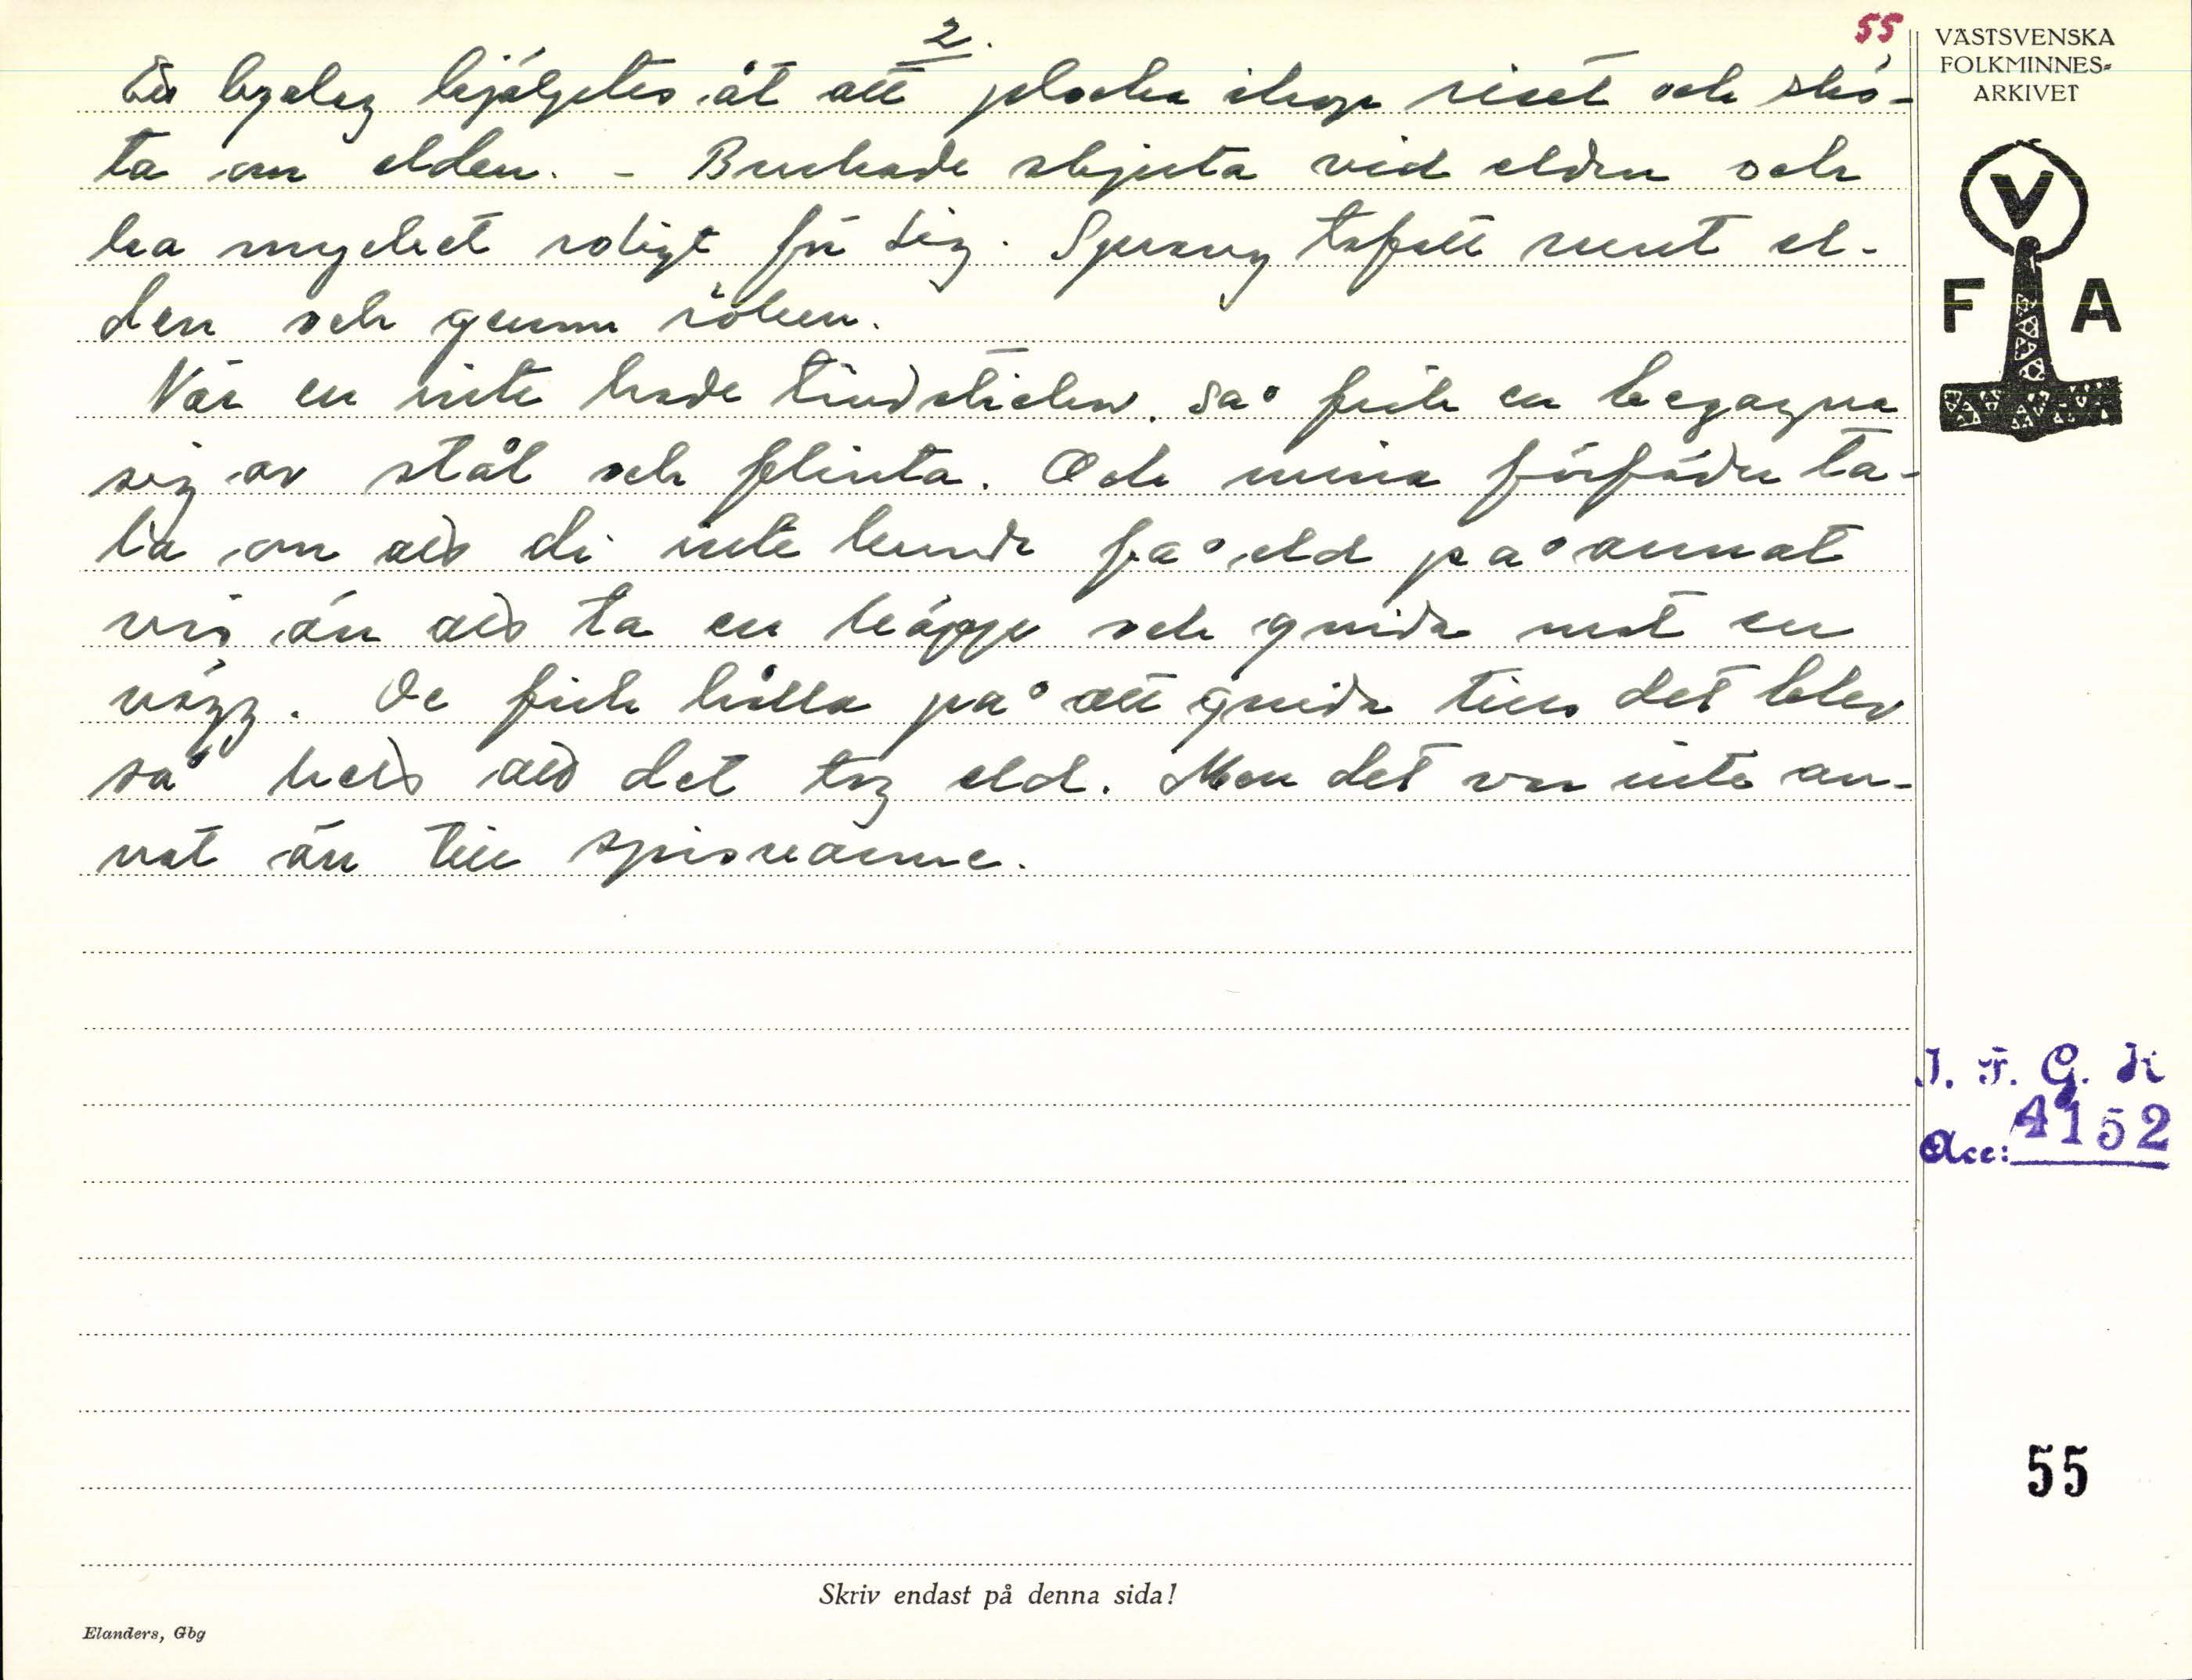 2.
55
En bydlag hjälptes åt att plocka ihop riset och skö-
ta om elden. - Brukade skjuta vid elden och
ha mycket roligt för sig. Sprang tafatt runt el-
den och genom röken.
När en inte hade tändstickor, så fick en begagna
sig av stål och flinta. Och mina förfäder ta-
la om att di inte kunde få eld på annat
vis än att ta en käpp och gnida mot en
vägg. De fick hålla på att gnida tills det blev
så hett att det tog eld. Men det var inte an-
nat än till spisvärme.
VÄSTSVENSKA
FOLKMINNES-
ARKIVET
V
F A
I. F. G. H
Acc: 4152
55
Skriv endast på denna sida!
Elanders, Gbg